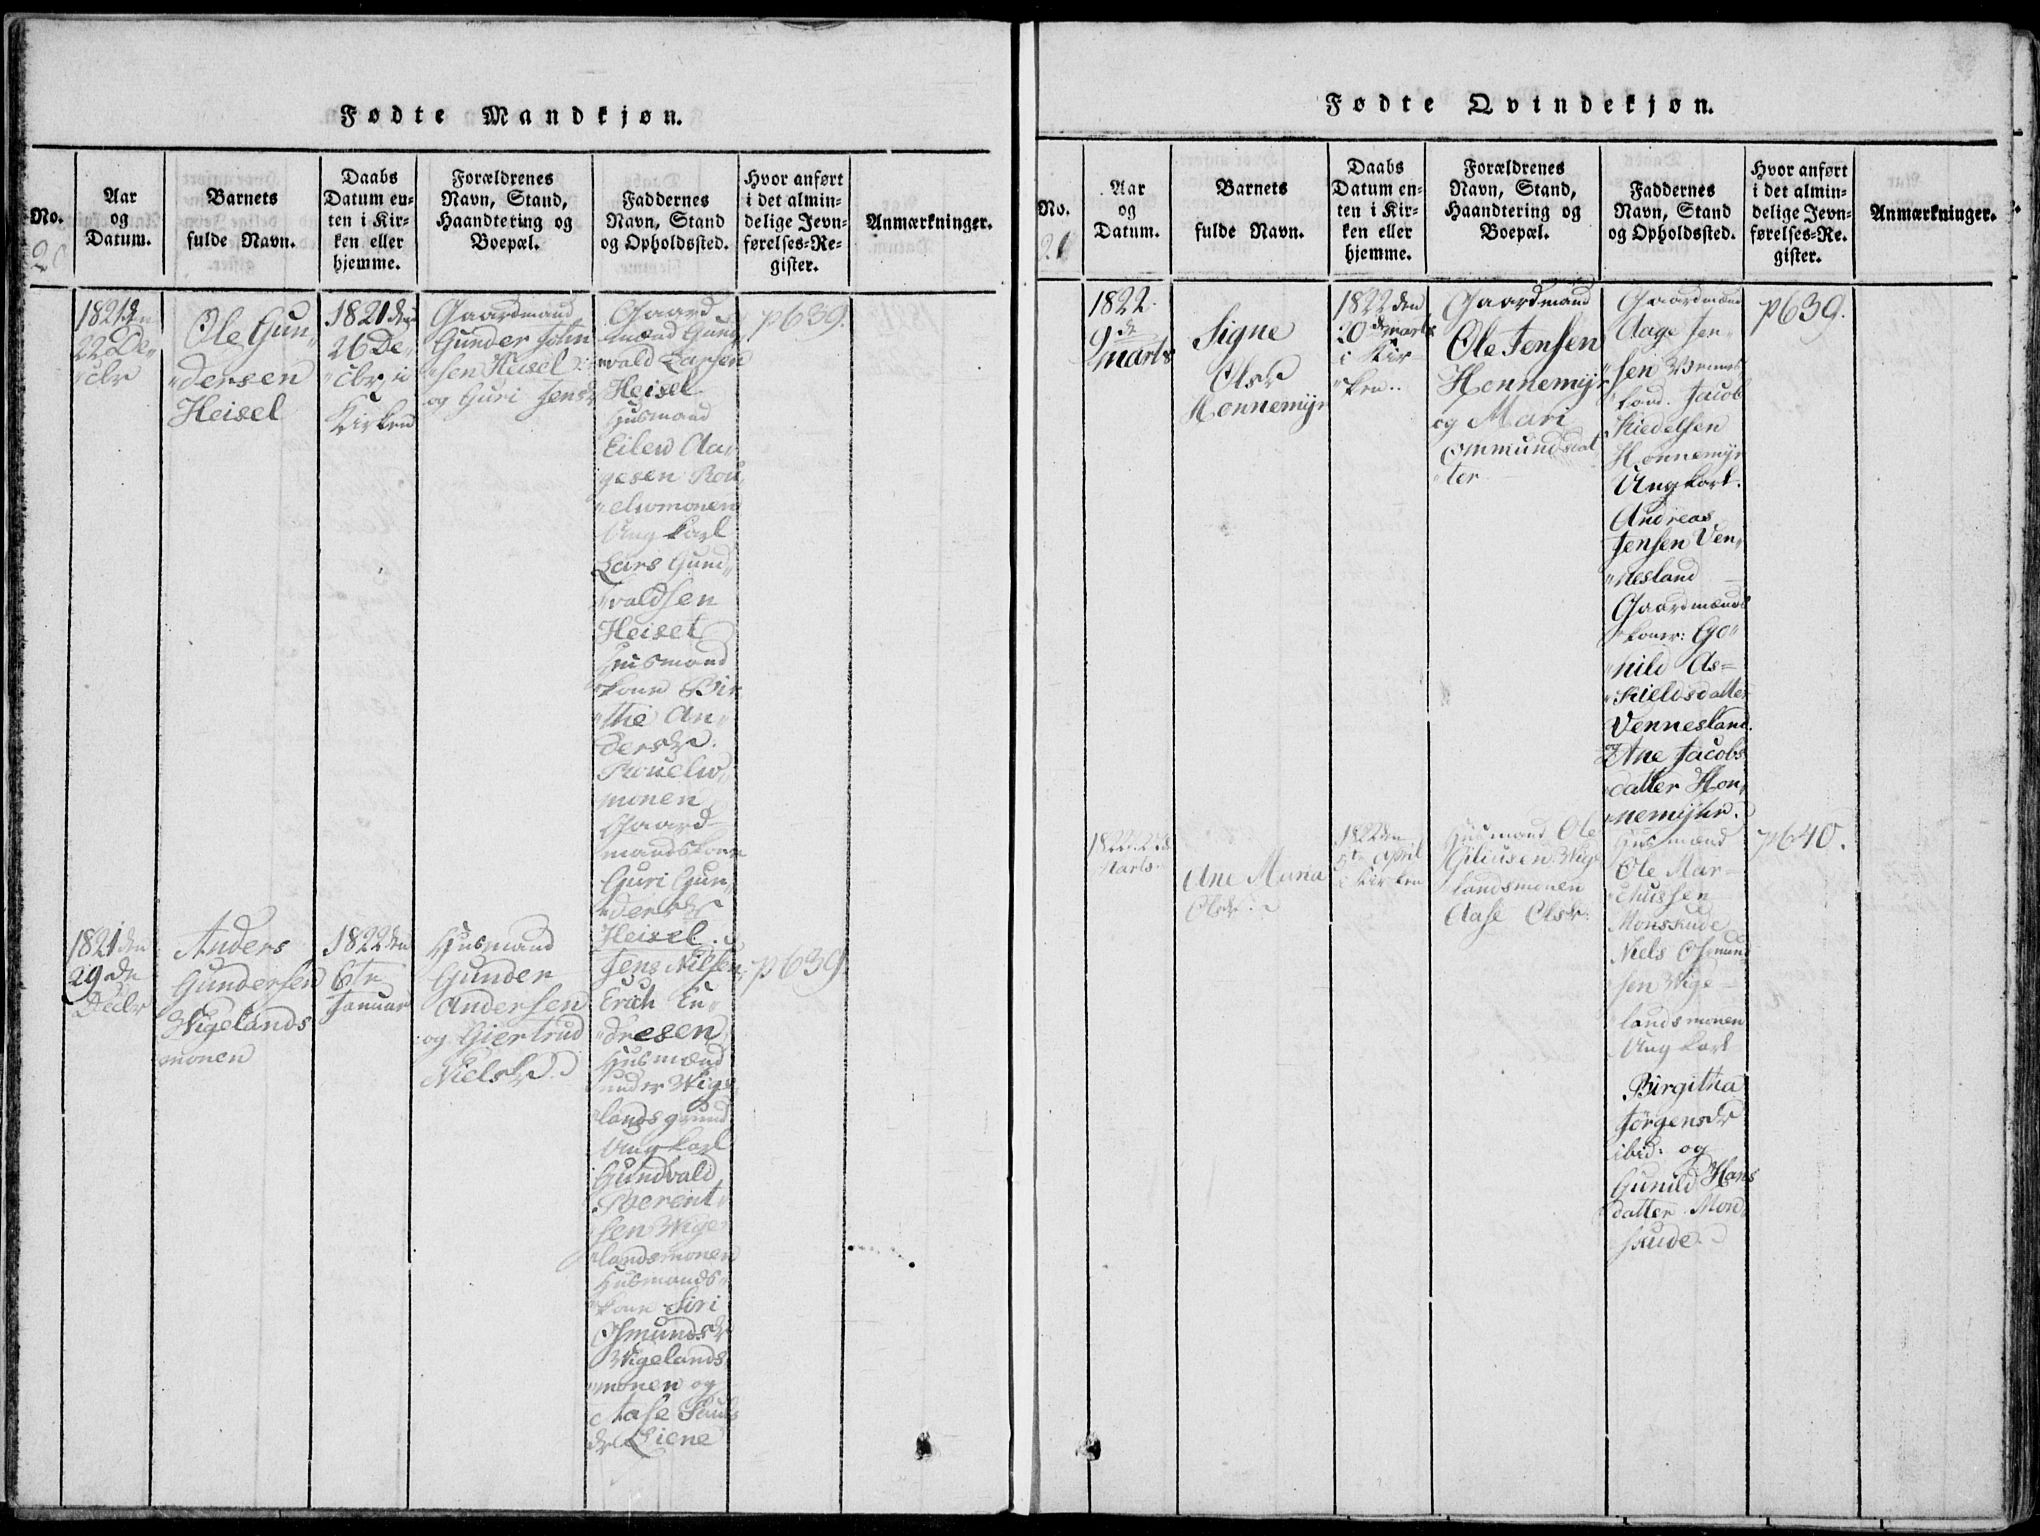 Fødte Mandkjøn.
No.
Aar
og
Datum.
Barnets
fulde Navn.
Daabs
Datum en-
ten i Kir-
ken eller
hjemme.
Forældrenes
Navn, Stand,
Haandtering og
Boepæl.
Faddernes
Navn, Stand
og Opholdssted.
Hvor anført
i det almin-
delige Jevn-
førelses-Re-
gister.
Anmærkninger.
1821 den
22 De„
„cbr
Ole Gun„
„dersen
Heisel
1821 den
26 De„
„cbr i
Kirken
Gaardmand
Gunder John
„sen Heisel
og Guri Jensdr
Gaard
mænd Gun„
„vald Larsen
Heisel
Husmand
Eilev Aa„
gesen Rou„
„elvomonen
Ung karl
Lars Gund„
„valdsen
Heisel
Husmand
„kone Bir
„the An„
dersdr.
Rouelvo„
monen
Gaard
mandskone
Guri Gun„
„dersdr
Heisel.
p 639.
1821 den
29 de
Decbr
Anders
Gundersen
Wigelands
monen
1822 den
6te
Januar
Husmand
Gunder
Andersen
og Giertrud
Nielsdr.
Jens Nilsen
Erich En„
„dresen
Husmænd
under Wige„
„lands grund
Ung karl
Gundvald
Berent„
„sen Wige„
„landsmonen
Husmands„
„kone Siri
Osmundsdr
Wigelands
„monen og
Aase Pauls
dr Liene
p 639.
Fødte Qvindekjøn.
No.
Aar
og
Datum.
Barnets
fulde Navn.
Daabs
Datum en-
ten i Kir-
ken eller
hjemme.
Forældrenes
Navn, Stand,
Haandtering og
Boepæl.
Faddernes
Navn, Stand
og Opholdssted.
Hvor anført
i det almin-
delige Jevn-
førelses-Re-
gister.
Anmærkninger.
1822.
9de
marts
Signe
Olsdr
Honnemyr
1822 den
20de marts
i Kir„
„ken..
Gaardmand
Ole Jensen
Honnemyr
og Mari
Ommundsdat
„ter
Gaardmænd
Aage Jen„
„sen Vennes
„land. Jacob
Kiedelsen
Honnemyr
Ung karl.
Andreas
Jensen Ven„
„nesland
Gaardmænds
„koner: Go„
„nild As=
„kieldsdatter
Vennesland.
Ane Jacobs
datter Hon„
„nemyhr.
p 639.
1822. 27de
Marts.
Ane Maria
Olsdr.
1822 den
5te April
i Kirken
Husmand Ole
Giliusen Wige
landsmonen
Aase Olsdr.
Husmænd
Ole Mar=
„chussen
Monskude
Niels Osmund
„sen Wige=
„landsmonen
Ung karl
Birgitha
Jørgensdr
ibid: og
Gunild Hans
datter Mon„
„skude.
p 640.